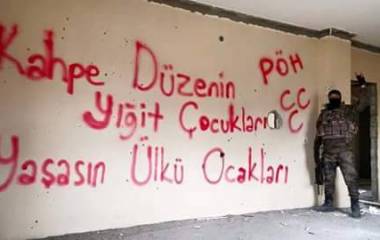 Kahpe Düzenin PÖH
Yiğit Çocukları CCC
Yaşasın Ülkü Ocakları